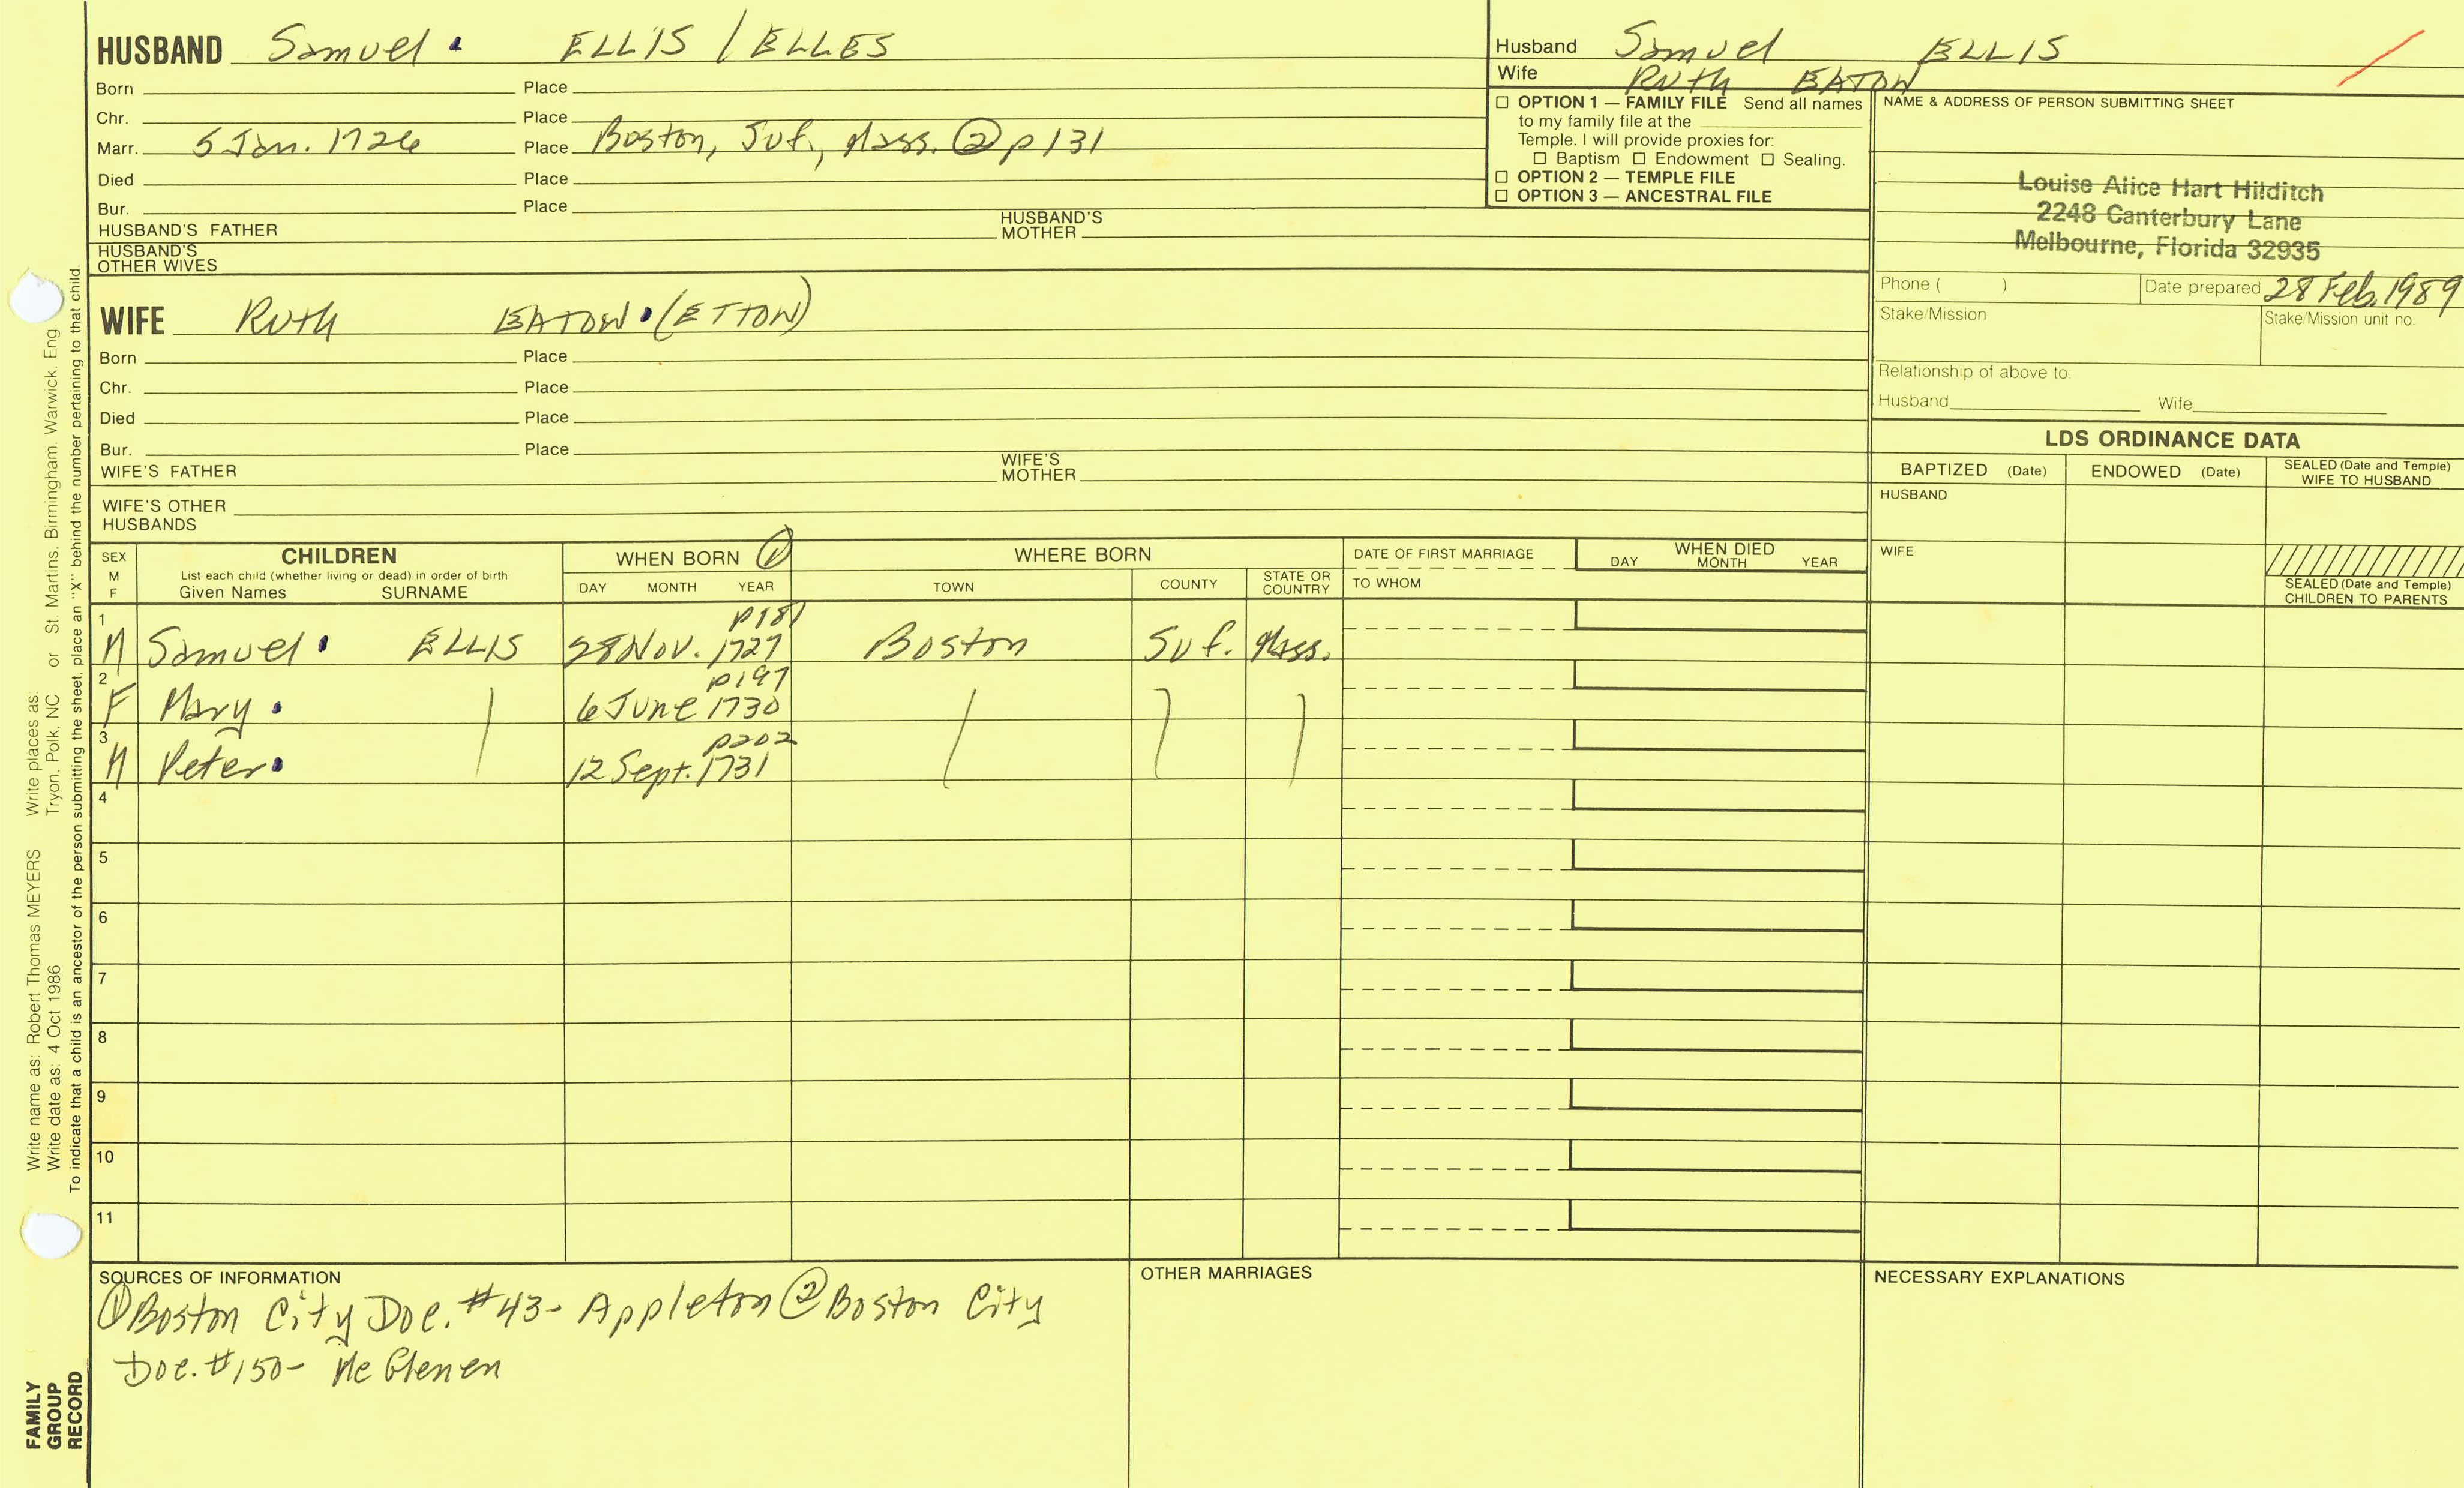 HUSBAND Samuel ELLIS / ELLES
Born Place
Chr. Place
Marr. 5 Jan. 1726 Place Boston, Suf., Mass. ② p 131
Died Place
Bur. Place
HUSBAND'S FATHER HUSBAND'S MOTHER
HUSBAND'S OTHER WIVES
WIFE Ruth EATON (ETTON)
Born Place
Chr. Place
Died Place
Bur. Place
WIFE'S FATHER WIFE'S MOTHER
WIFE'S OTHER HUSBANDS
Husband Samuel ELLIS
Wife Ruth EATON
☐ OPTION 1 — FAMILY FILE Send all names
to my family file at the
Temple. I will provide proxies for:
☐ Baptism ☐ Endowment ☐ Sealing.
☐ OPTION 2 — TEMPLE FILE
☐ OPTION 3 — ANCESTRAL FILE
NAME & ADDRESS OF PERSON SUBMITTING SHEET
Louise Alice Hart Hilditch
2248 Canterbury Lane
Melbourne, Florida 32935
Phone ( ) Date prepared 28 Feb. 1989
Stake/Mission Stake/Mission unit no.
Relationship of above to:
Husband Wife
LDS ORDINANCE DATA
BAPTIZED (Date) ENDOWED (Date) SEALED (Date and Temple) WIFE TO HUSBAND
HUSBAND
WIFE
SEALED (Date and Temple)
CHILDREN TO PARENTS
SEX M F
CHILDREN
List each child (whether living or dead) in order of birth
Given Names SURNAME
WHEN BORN ①
DAY MONTH YEAR
WHERE BORN
TOWN COUNTY STATE OR COUNTRY
DATE OF FIRST MARRIAGE
TO WHOM
WHEN DIED
DAY MONTH YEAR
1 p187
M Samuel ELLIS 28 Nov. 1727 Boston Suf. Mass.
2 p197
F Mary 6 June 1730
3 p202
M Peter 12 Sept. 1731
4
5
6
7
8
9
10
11
SOURCES OF INFORMATION
① Boston City Doc. #43- Appleton ② Boston City
Doc. #150- McGlenen
OTHER MARRIAGES
NECESSARY EXPLANATIONS
Write name as: Robert Thomas MEYERS Write places as:
Write date as: 4 Oct 1986 Tryon, Polk, NC or St. Martins, Birmingham, Warwick, Eng.
To indicate that a child is an ancestor of the person submitting the sheet, place an "X" behind the number pertaining to that child.
FAMILY
GROUP
RECORD